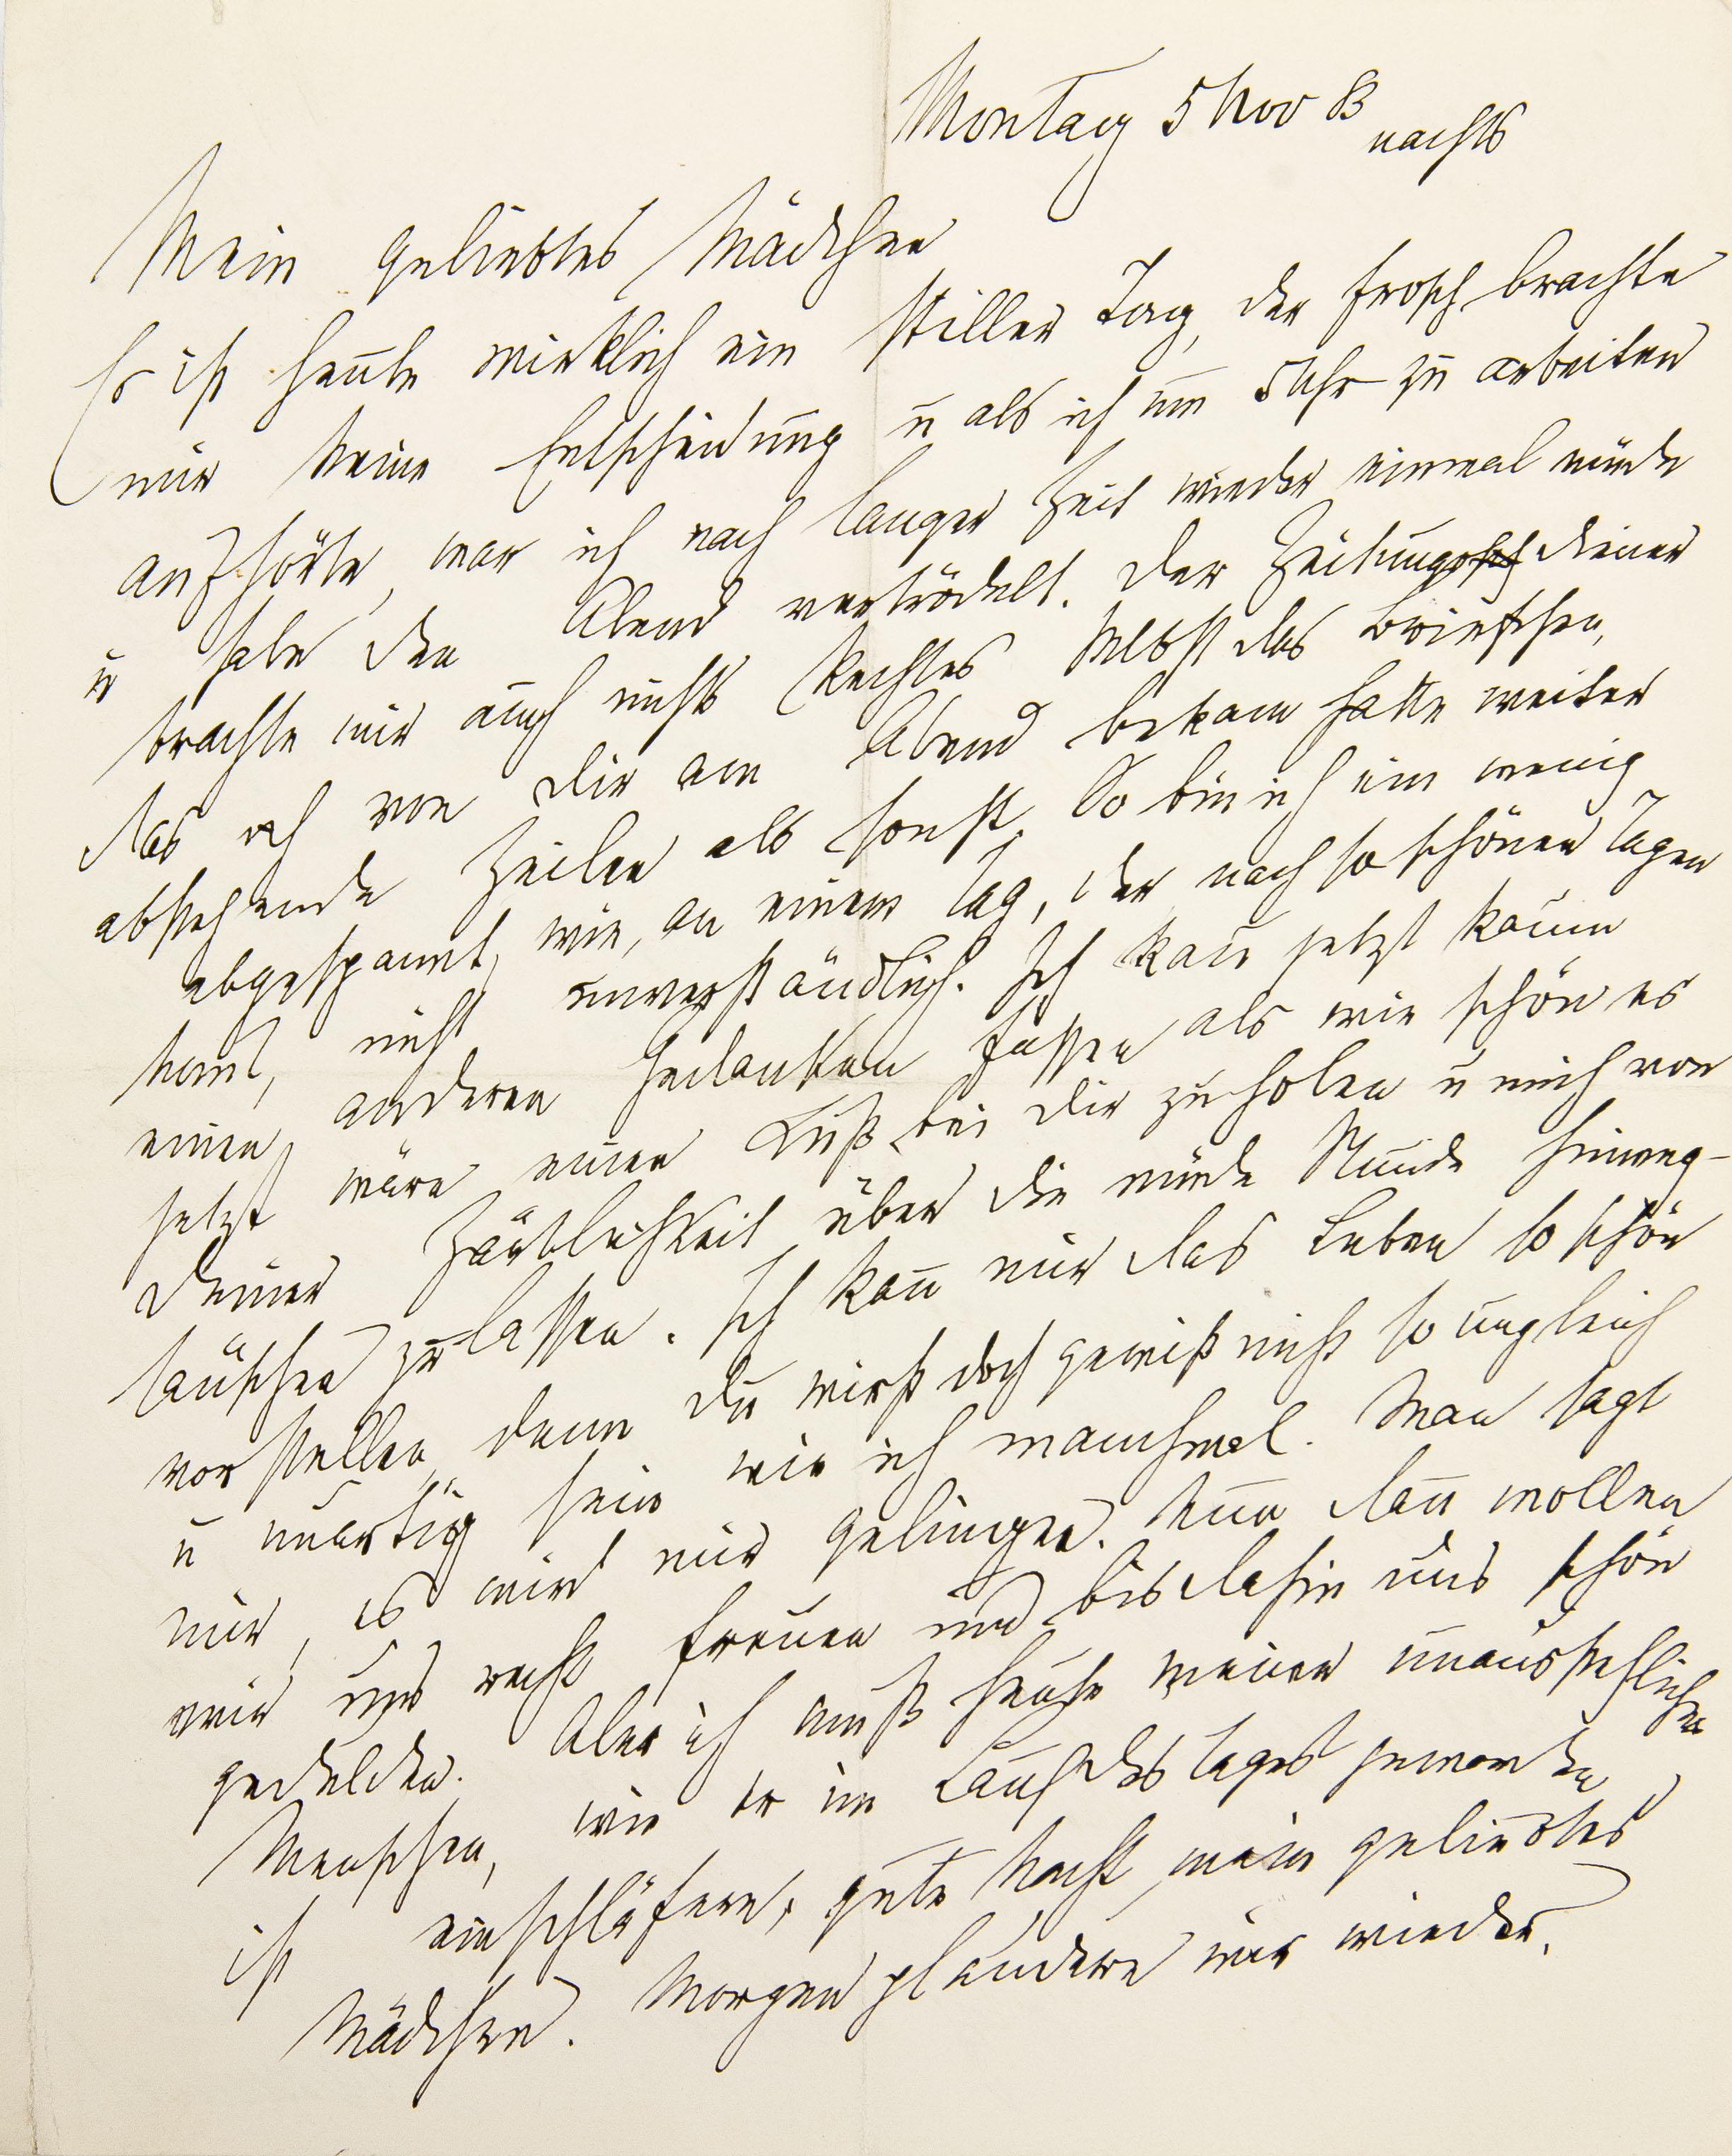 Montag 5 Nov 83
nachts
Mein geliebtes Mädchen
Es ist heute wirklich ein stiller Tag, der Frosch brachte
mir keine Entscheidung u als ich um 5 Uhr zu arbeiten
aufhörte, war ich nach langer Zeit wieder einmal müde
u habe den Abend vertrödelt. Der Zeitungsdiener
brachte mir auch nichts Rechtes selbst das Briefchen,
das ich von Dir am Abend bekam hatte weiter
abstehende Zeilen als sonst. So bin ich ein wenig
abgespannt, wie, an einem Tag, der nach so schönen Tagen
komt, nicht unverständlich. Ich kan jetzt kaum
einen anderen Gedanken fassen als wie schön es
jetzt wäre einen Kuß bei Dir zu holen u mich von
Deiner Zärtlichkeit über die müde Stunde hinweg-
täuschen zu lassen. Ich kan mir das Leben so schön
vorstellen, denn Du wirst doch gewiß nicht so ungleich
u unartig sein wie ich manchmal. Man sagt
mir, es wird mir gelingen. Nun dan wollen
wir uns recht freuen und bis dahin uns schön
gedulden. Aber ich muß heute meinen unausstehlichen
Menschen, wie er im Lauf des Tages geworden
ist einschläfern, gute Nacht, mein geliebtes
Mädchen. Morgen plaudern wir wieder.